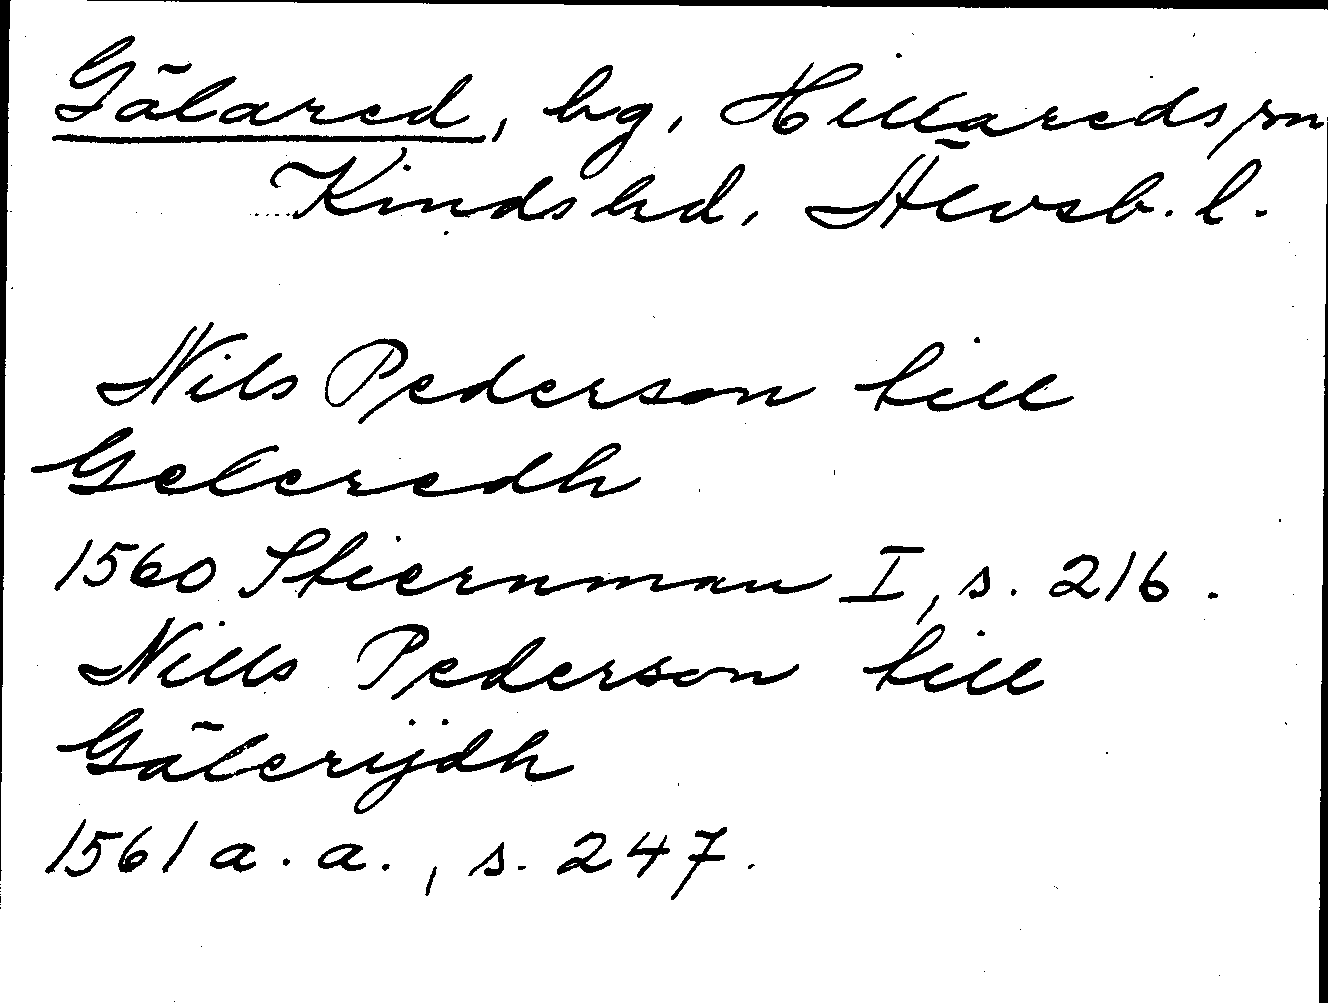 Gälared, bg, Hillareds sn
Kinds hd, Älvsb. l.
Nils Pederson till
Geleredh
1560 Stiernman I, s. 216.
Nills Pederson till
Gälerijdh
1561 a. a., s. 247.